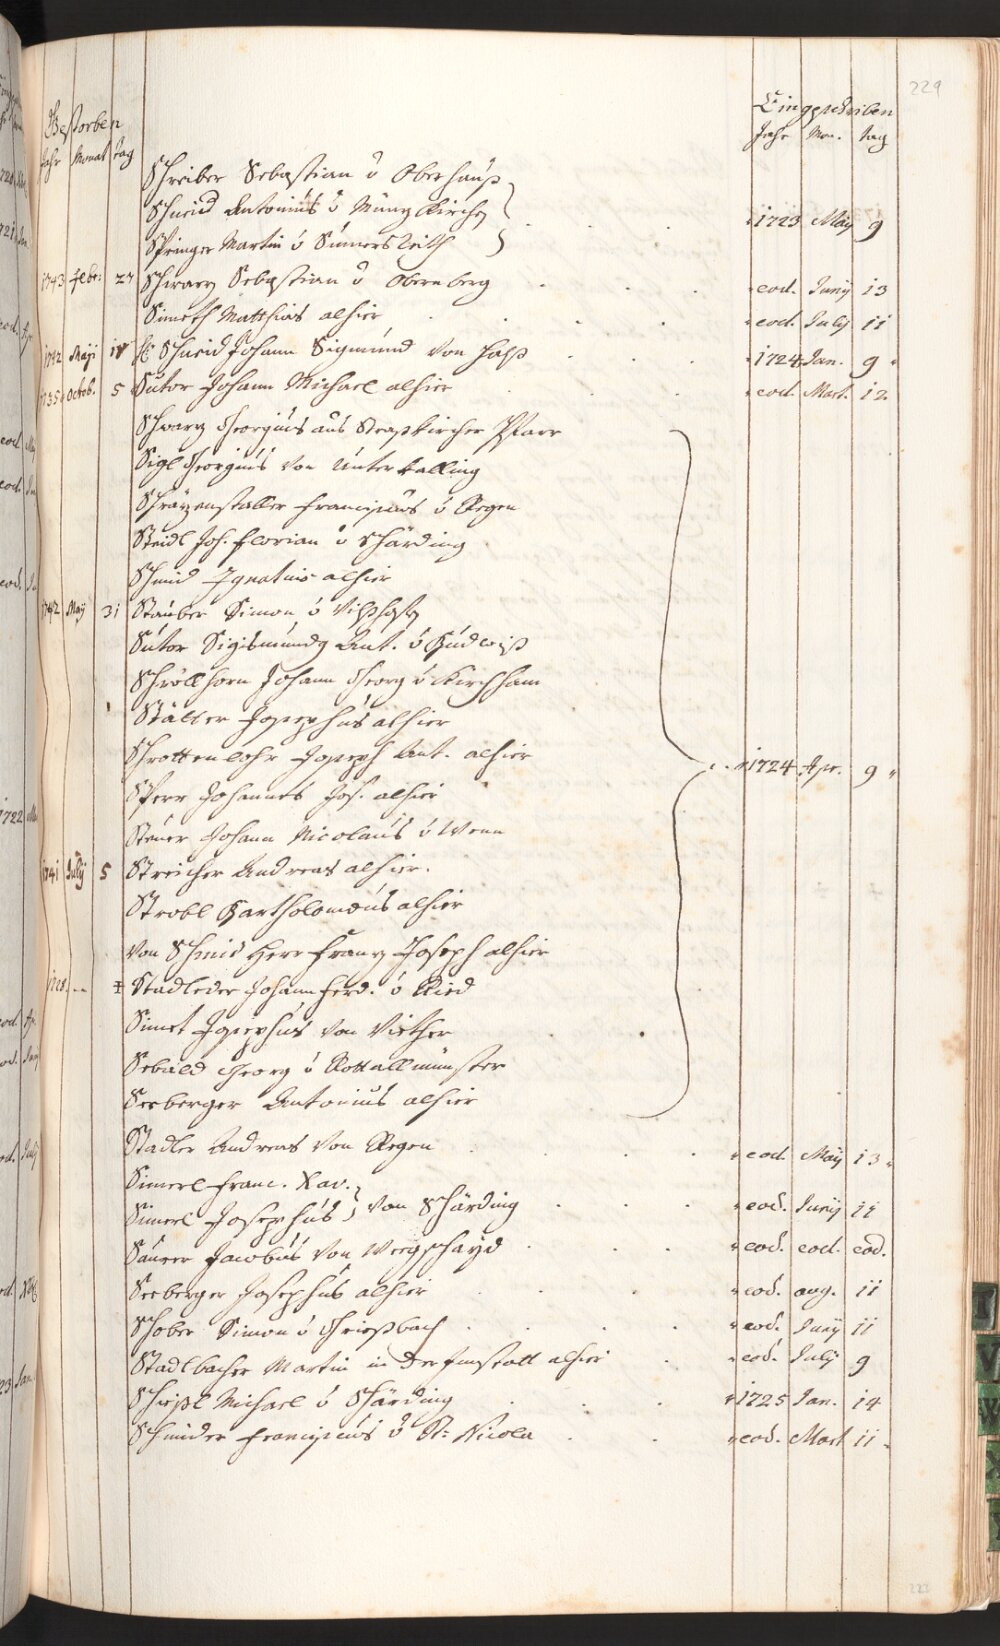 229
Gestorben
Jahr Monat tag
Eingeschriben
Jahr Mon. tag
Schreiber Sebastian v Oberhauß
Schmid Antonius v Münzkirchen 1723 May 9
Springer Martin v
1743 Febr: 27 Schwarz Sebastian v Obernberg eod. Junij 13
Simeth Matthias alhier eod. July 11
1742 Maji 17 H: Schmid Johann Sigmund von Halß 1724 Jan. 9
1735 Octob. 5 Sutor Johann Michael alhier eod. Mart. 12
Schwarz Georgius aus Straßkircher Pfarr
Sigl Georgius von Unter
Franciscus v Regen
Steidl Joh. Florian v Schärding
Schmid Ignatius alhier
1742 May 31 Stauber Simon v Vilßhofen
Sutor Sigismundg Ant. v
Schröllhorn Johann Georg v Kirchham
Josephus alhier
Schrottenlohr Joseph Ant. alhier 1724 Apr. 9
Johannes Jos. alhier
Steuer Johann Nicolaus v
1741 July 5 Streicher Andreas alhier.
Strobl Bartholomæus alhier
von Schmid Herr Franz Joseph alhier
1728 -- ‡ Stadleder Johann Ferd. v Ried
Simet Josephus von
Sebald Georg v Rottallmünster
Seeberger Antonius alhier
Stadler Andreas von Regen eod. May 13
Simerl Franc. Xav.
Simerl Josephus von Schärding eod. Junij 11
Saurer Jacobus von Wegscheyd eod. eod. eod.
Seeberger Josephus alhier eod. aug. 11
Schober Simon v Grießbach eod. Junij 11
Stadlbacher Martin in der Innstatt alhier eod. July 9
Michael v Schärding 1725 Jan. 14
Schmider Franciscus v St: Nicola eod. Mart 11
223